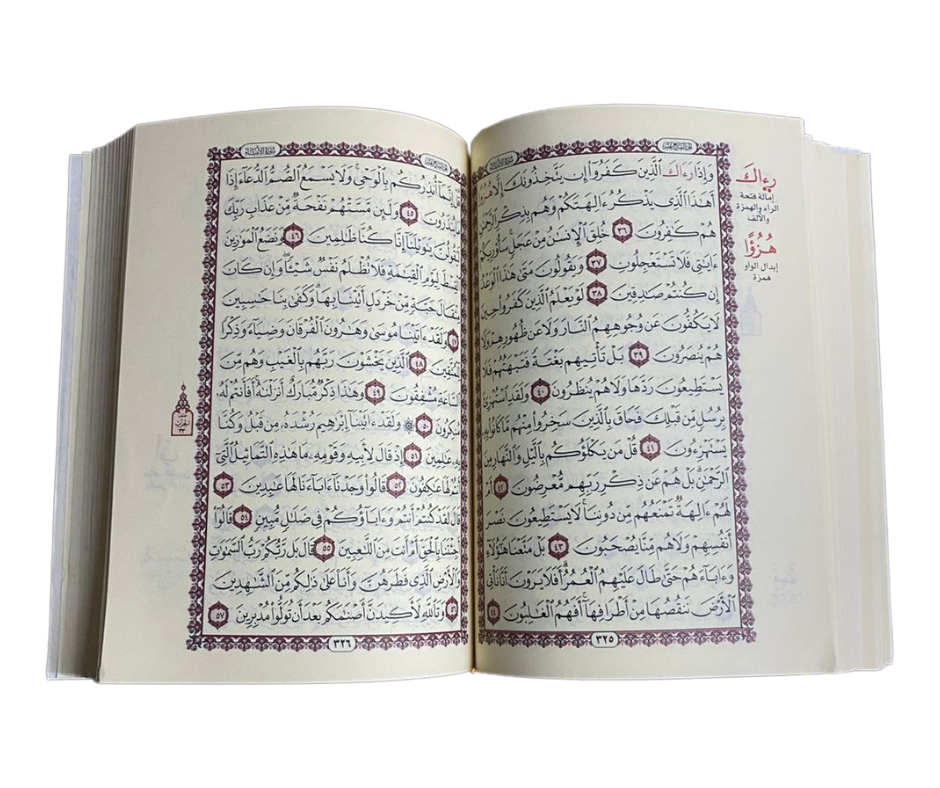 سُورَةُ الأَنبِيَاءِ
وَإِذَا رِءَاكَ ٱلَّذِينَ كَفَرُوٓا۟ إِن يَتَّخِذُونَكَ إِلَّا هُزُؤًا
أَهَٰذَا ٱلَّذِى يَذْكُرُ ءَالِهَتَكُمْ وَهُم بِذِكْرِ ٱلرَّحْمَٰنِ
هُمْ كَٰفِرُونَ ٣٦ خُلِقَ ٱلْإِنسَٰنُ مِنْ عَجَلٍ سَأُو۟رِيكُمْ
ءَايَٰتِى فَلَا تَسْتَعْجِلُونِ ٣٧ وَيَقُولُونَ مَتَىٰ هَٰذَا ٱلْوَعْدُ
إِن كُنتُمْ صَٰدِقِينَ ٣٨ لَوْ يَعْلَمُ ٱلَّذِينَ كَفَرُوا۟ حِينَ
لَا يَكُفُّونَ عَن وُجُوهِهِمُ ٱلنَّارَ وَلَا عَن ظُهُورِهِمْ وَلَا
هُمْ يُنصَرُونَ ٣٩ بَلْ تَأْتِيهِم بَغْتَةً فَتَبْهَتُهُمْ فَلَا
يَسْتَطِيعُونَ رَدَّهَا وَلَا هُمْ يُنظَرُونَ ٤٠ وَلَقَدِ ٱسْتُهْزِئَ
بِرُسُلٍ مِّن قَبْلِكَ فَحَاقَ بِٱلَّذِينَ سَخِرُوا۟ مِنْهُم مَّا كَانُوا۟ بِهِۦ
يَسْتَهْزِءُونَ ٤١ قُلْ مَن يَكْلَؤُكُم بِٱلَّيْلِ وَٱلنَّهَارِ مِنَ
ٱلرَّحْمَٰنِ بَلْ هُمْ عَن ذِكْرِ رَبِّهِم مُّعْرِضُونَ ٤٢ أَمْ
لَهُمْ ءَالِهَةٌ تَمْنَعُهُم مِّن دُونِنَا لَا يَسْتَطِيعُونَ نَصْرَ
أَنفُسِهِمْ وَلَا هُم مِّنَّا يُصْحَبُونَ ٤٣ بَلْ مَتَّعْنَا هَٰٓؤُلَآءِ
وَءَابَآءَهُمْ حَتَّىٰ طَالَ عَلَيْهِمُ ٱلْعُمُرُ أَفَلَا يَرَوْنَ أَنَّا نَأْتِى
ٱلْأَرْضَ نَنقُصُهَا مِنْ أَطْرَافِهَآ أَفَهُمُ ٱلْغَٰلِبُونَ ٤٤
٣٢٥
رِءَاكَ
إمالة فتحة
الراء والهمزة
والألف
هُزُؤًا
إبدال الواو
همزة
سُورَةُ الأَنبِيَاءِ
قُلْ إِنَّمَآ أُنذِرُكُم بِٱلْوَحْىِ وَلَا يَسْمَعُ ٱلصُّمُّ ٱلدُّعَآءَ إِذَا
مَا يُنذَرُونَ ٤٥ وَلَئِن مَّسَّتْهُمْ نَفْحَةٌ مِّنْ عَذَابِ رَبِّكَ
لَيَقُولُنَّ يَٰوَيْلَنَآ إِنَّا كُنَّا ظَٰلِمِينَ ٤٦ وَنَضَعُ ٱلْمَوَٰزِينَ
ٱلْقِسْطَ لِيَوْمِ ٱلْقِيَٰمَةِ فَلَا تُظْلَمُ نَفْسٌ شَيْـًٔا وَإِن كَانَ
مِثْقَالَ حَبَّةٍ مِّنْ خَرْدَلٍ أَتَيْنَا بِهَا وَكَفَىٰ بِنَا حَٰسِبِينَ
٤٧ وَلَقَدْ ءَاتَيْنَا مُوسَىٰ وَهَٰرُونَ ٱلْفُرْقَانَ وَضِيَآءً وَذِكْرًا
لِّلْمُتَّقِينَ ٤٨ ٱلَّذِينَ يَخْشَوْنَ رَبَّهُم بِٱلْغَيْبِ وَهُم مِّنَ
ٱلسَّاعَةِ مُشْفِقُونَ ٤٩ وَهَٰذَا ذِكْرٌ مُّبَارَكٌ أَنزَلْنَٰهُ أَفَأَنتُمْ لَهُۥ
مُنكِرُونَ ٥٠ ۞ وَلَقَدْ ءَاتَيْنَآ إِبْرَٰهِيمَ رُشْدَهُۥ مِن قَبْلُ وَكُنَّا
بِهِۦ عَٰلِمِينَ ٥١ إِذْ قَالَ لِأَبِيهِ وَقَوْمِهِۦ مَا هَٰذِهِ ٱلتَّمَاثِيلُ ٱلَّتِىٓ
أَنتُمْ لَهَا عَٰكِفُونَ ٥٢ قَالُوا۟ وَجَدْنَآ ءَابَآءَنَا لَهَا عَٰبِدِينَ ٥٣
قَالَ لَقَدْ كُنتُمْ أَنتُمْ وَءَابَآؤُكُمْ فِى ضَلَٰلٍ مُّبِينٍ ٥٤ قَالُوٓا۟
أَجِئْتَنَا بِٱلْحَقِّ أَمْ أَنتَ مِنَ ٱللَّٰعِبِينَ ٥٥ قَالَ بَل رَّبُّكُمْ رَبُّ ٱلسَّمَٰوَٰتِ
وَٱلْأَرْضِ ٱلَّذِى فَطَرَهُنَّ وَأَنَا۠ عَلَىٰ ذَٰلِكُم مِّنَ ٱلشَّٰهِدِينَ
٥٦ وَتَٱللَّهِ لَأَكِيدَنَّ أَصْنَٰمَكُم بَعْدَ أَن تُوَلُّوا۟ مُدْبِرِينَ ٥٧
٣٢٦